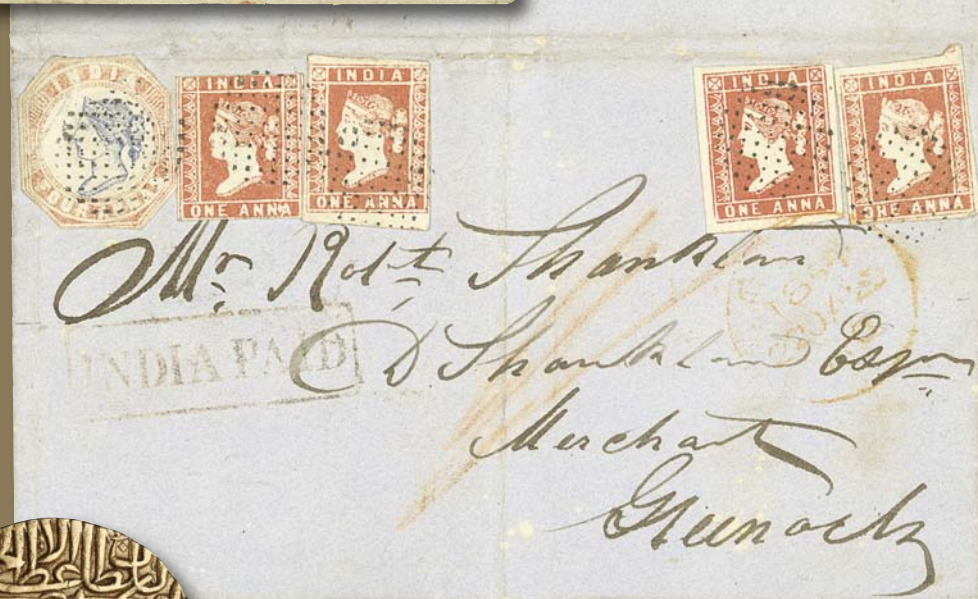 INDIA
FOUR ANNAS
INDIA
ONE ANNA
INDIA
ONE ANNA
INDIA
ONE ANNA
INDIA
ONE ANNA
Mr. Robt. Shanklan
INDIA PAID
D Shanklan Esqr
Merchant
Greenock